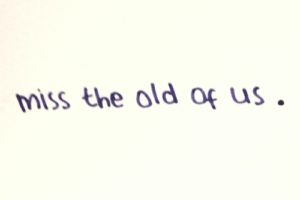 miss the old of us.